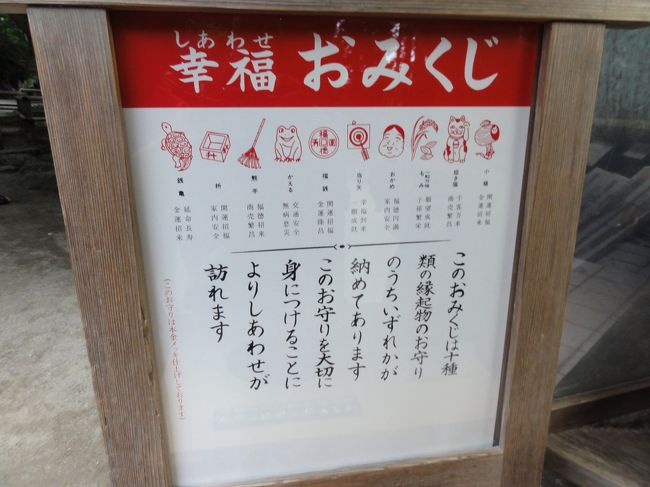 しあわせ
幸福 おみくじ
小槌
開運招福
金運招来
招き猫
千客万来
商売繁昌
一粒万倍
もみ
願望成就
子孫繁栄
おかめ
福徳円満
家内安全
当り矢
幸福到来
一願成就
福銭
開運招福
金運隆昌
かえる
交通安全
無病息災
熊手
福徳招来
商売繁昌
枡
開運招福
家内安全
銭亀
延命長寿
金運招来
このおみくじは十種
類の縁起物のお守り
のうちいずれかが
納めてあります
このお守りを大切に
身につけることに
よりしあわせが
訪れます
(このお守りは本金メッキ仕上げしております)